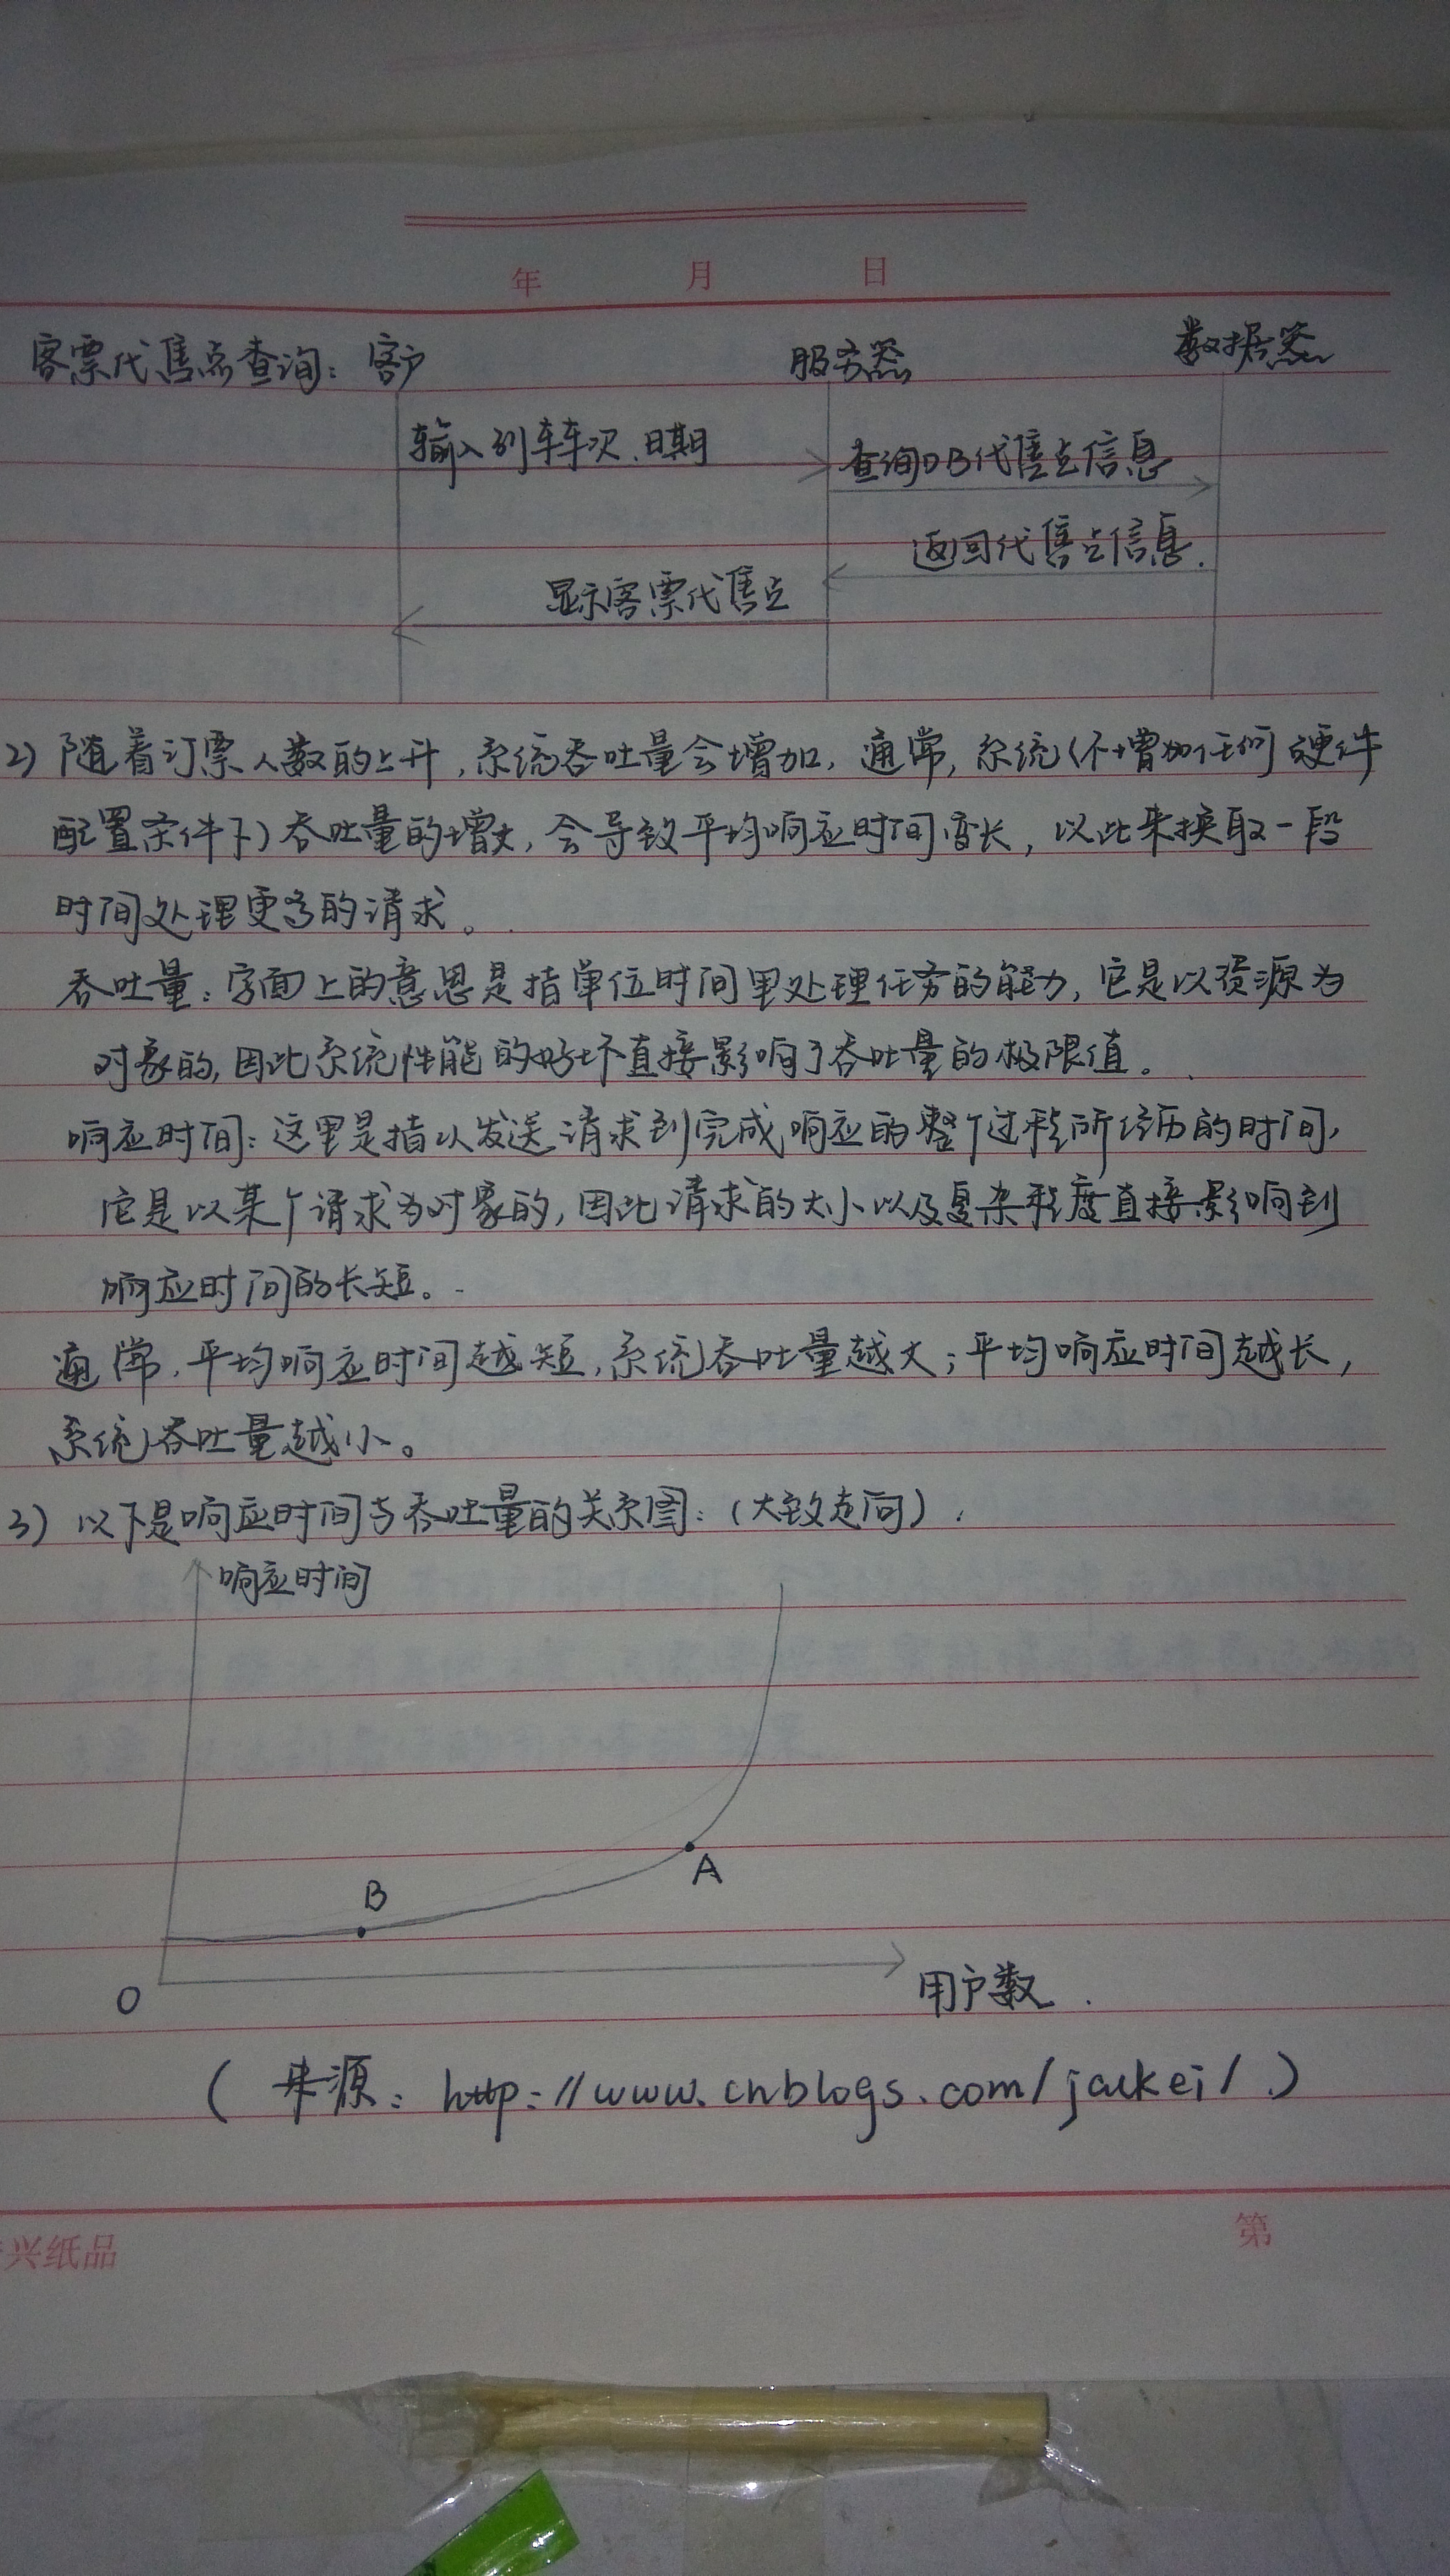 年 月 日
客票代售点查询: 客户 服务器 数据器
输入列车车次、日期
查询DB代售点信息
返回代售点信息.
显示客票代售点
2) 随着订票人数的上升,系统吞吐量会增加,通常,系统(不增加任何硬件
配置条件下)吞吐量的增大,会导致平均响应时间变长,以此来换取一段
时间处理更多的请求。
吞吐量:字面上的意思是指单位时间里处理任务的能力,它是以资源为
对象的,因此系统性能的好坏直接影响了吞吐量的极限值。
响应时间:这里是指从发送请求到完成响应的整个过程所经历的时间,
它是以某个请求为对象的,因此请求的大小以及复杂程度直接影响到
响应时间的长短。
通常,平均响应时间越短,系统吞吐量越大;平均响应时间越长,
系统吞吐量越小。
3) 以下是响应时间与吞吐量的关系图:(大致走向).
响应时间
A
B
O
用户数.
( 来源: http://www.cnblogs.com/jackei/ .)
兴纸品 第